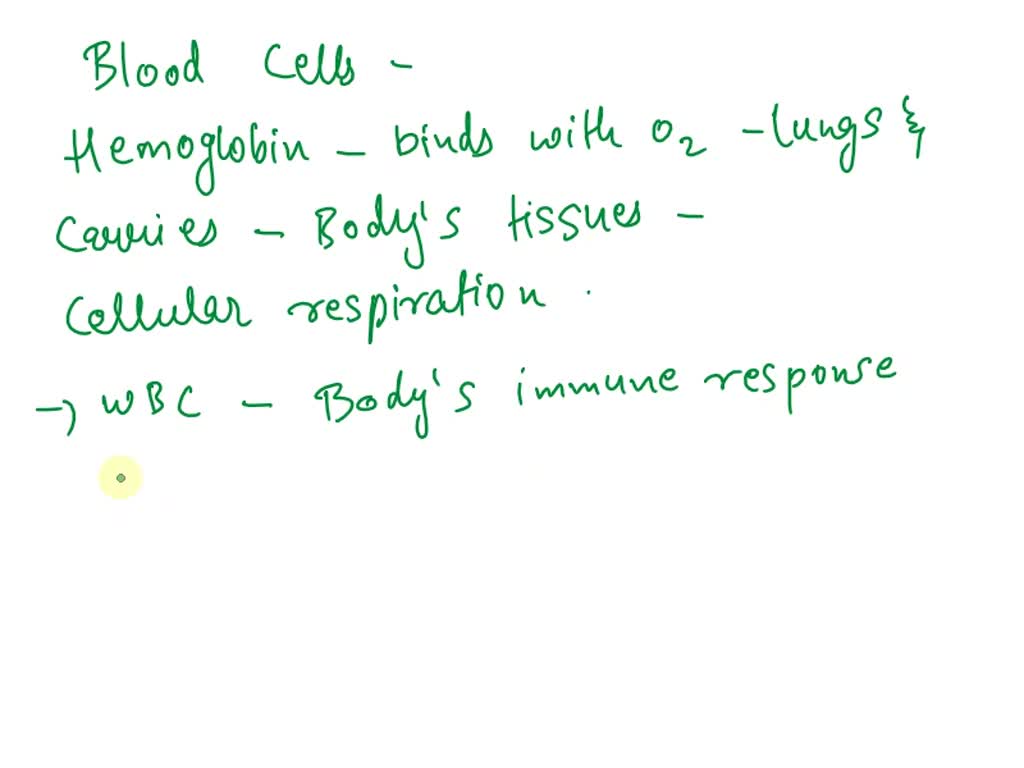 Blood Cells -
Hemoglobin - binds with O2 - lungs &
Carries - Body's tissues -
Cellular respiration .
→ WBC - Body's immune response